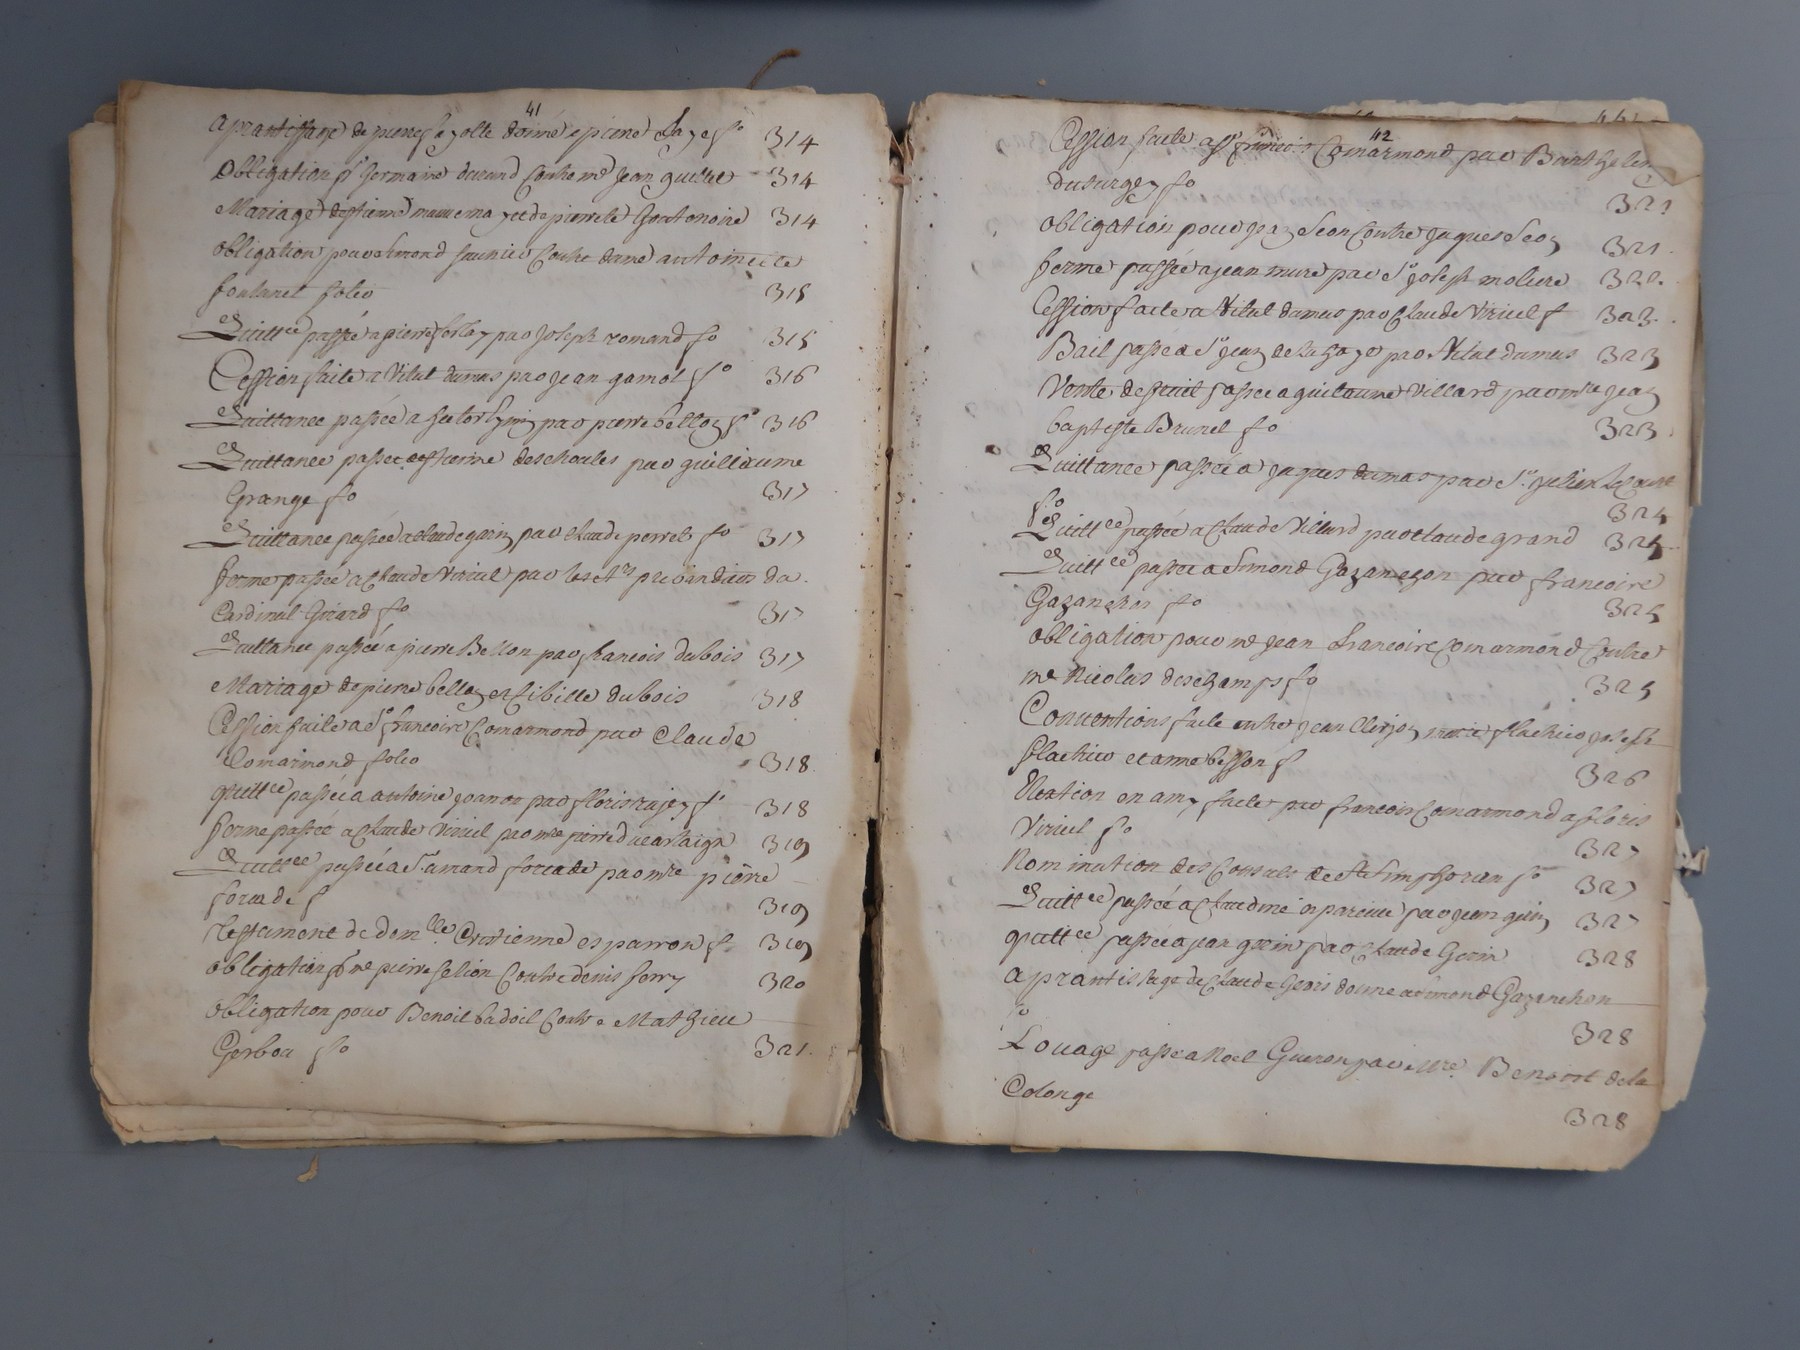 41
aprantissage de pierre fayolle donné a pierre Faye fo 314
obligation pr Germaine durand Contre me Jean guillet 314
Mariage destienne mauverna et de pierrete Gontonoire 314
obligation pour Simond saunier Contre dame antoinette
fontanel folio 315
Quittce passée a pierre forlay par Joseph romand fo 315
Cession faite a Vital dumas par Jean gamot fo 316
Quittance passée a par pierre bellon fo 316
Quittance passée a estienne deschoules par guillaume
Grange fo 317
Quittance passée a Claude gorin par Claude perret fo 317
ferme passée a Claude Viricel par les srs prebandiers du
Cardinal Girard fo 317
Quittance passée a pierre Bellon par francois dubois 317
Mariage de pierre bellon et Sibille dubois 318
Cession faite a Sr francoise Comarmond par Claude
Comarmond folio 318
quittce passée a antoine joannon par floris rajon fo 318
ferme passée a Claude Viricel par mre pierre ducarlaign 319
Quittce passée a Sr amand forcade par mre pierre
forcade f 319
testament de domlle Cretienne esparron fo 319
obligation pr me pierre selion Contre denis ferry 320
obligation pour Benoit badoil Contre Mathieu
Gerbou fo 321
42
Cession faite a Sr francois Comarmond par Barthelemy
dusurgey fo 321
obligation pour Jean Seon Contre Jaques Seon 321
ferme passée a jean mure par Sr Joseph moliere 322
Cession faite a Vital dumas par Claude Viricel f 323
Bail passé a Sr Jean de la haye par Vital dumas 323
Vente de passée a guilaume Villard par mre Jean
baptiste Brunel fo 323
Quittance passée a Jaques dumas par Sr Julien
fo 324
Quittce passée a Claude Villard par Claude grand 325
Quittce passée a Simond Gazanchon par francoise
Gazanchon fo 325
obligation pour me Jean francoise Comarmond Contre
me Nicolas deschamps fo 325
Conventions faite entre Jean Clerjon marie flachier Joseph
flachier et anne besson f 326
Election en amy faite par francois Comarmond a floris
Viricel fo 327
Nomination des Consuls de St Simphorien fo 327
Quittce passée a Claudine par Jean 327
quittce passée a jean gorin par Claude Gorin 328
aprantissage de Claude donné a Simond Gazanchon
fo 328
Louage passé a Noel Gueron par mre Benoist de la
Colonge 328